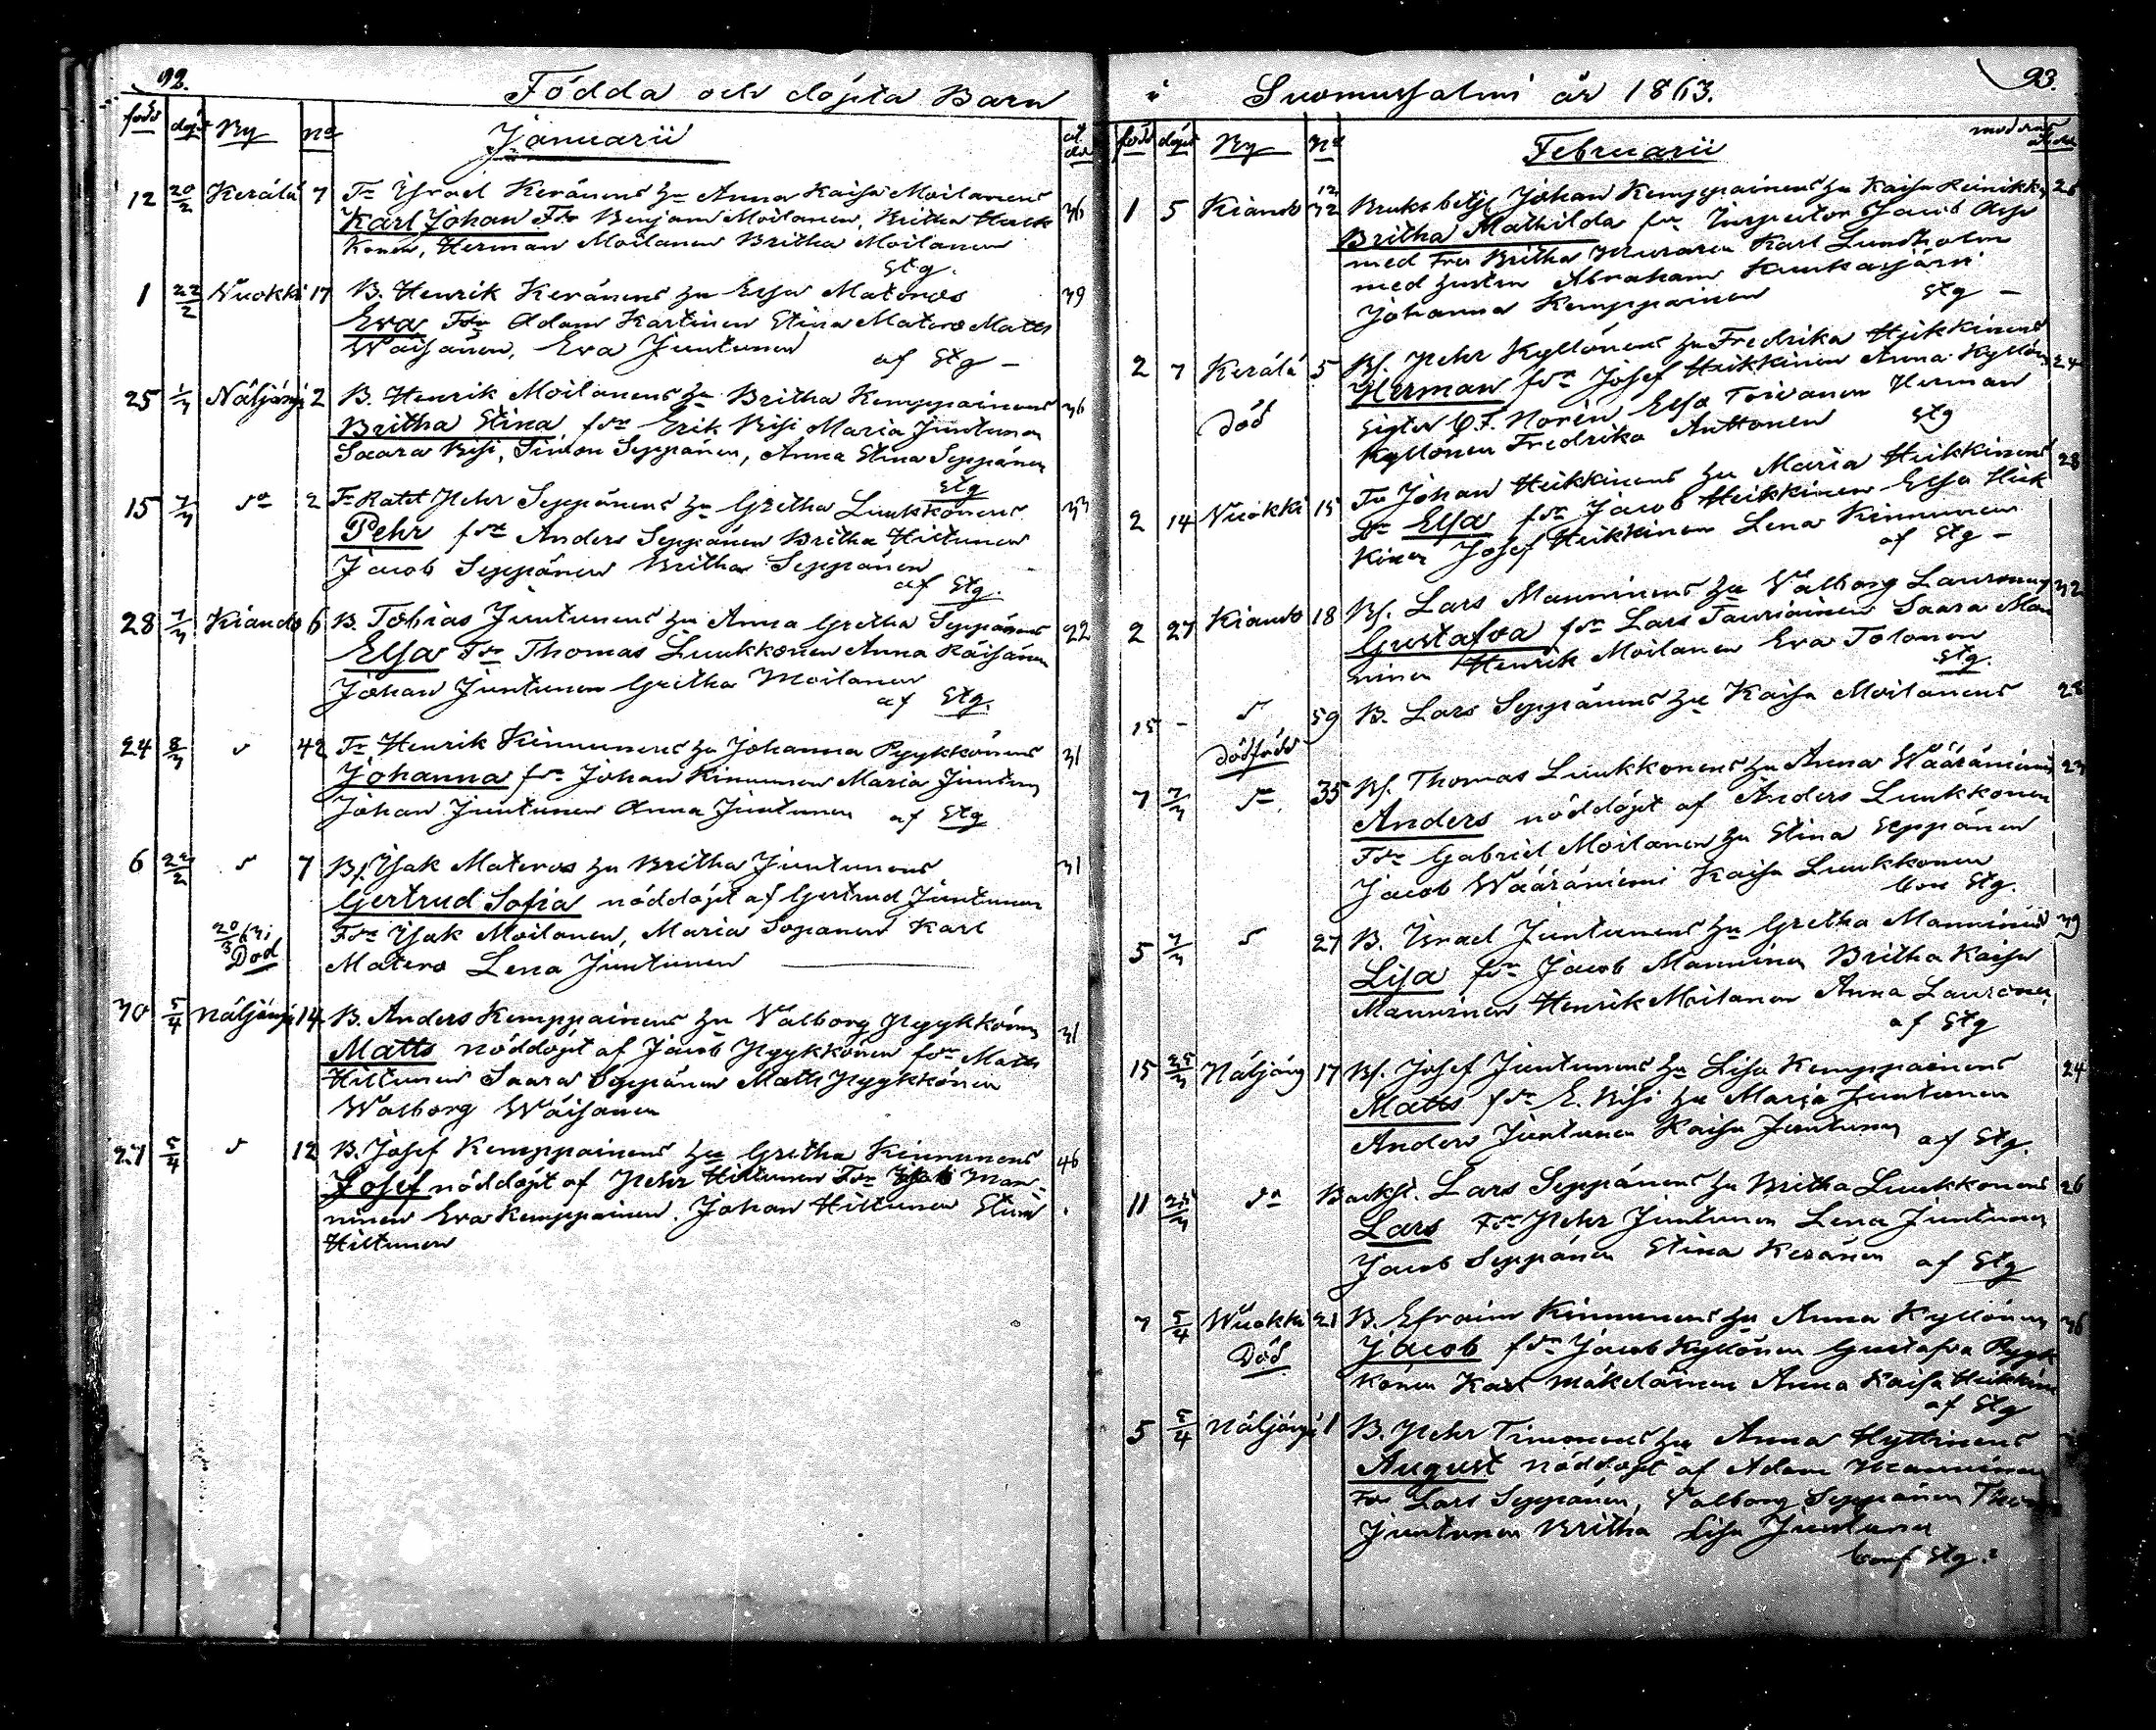 92.
Födda och döpta Barn
född döpt By No Januarii
12 20/2 Kerälä 7 Tr Israel Keränens hu Anna Kaisa Moilanens 36
Karl Johan Fdr Benjam Moilanen, Britha Huck
konen, Herman Moilanen Britha Moilanen
Stg.
1 22/2 Vuokki 17 B. Henrik Keränens hu Elsa Materos 39
Eva Fdr Adam Kartinen Stina Matero Matts
Wäisänen, Eva Juntunen
af Stg –
25 1/3 Näljängi 2 B. Henrik Moilanens hu Britha Kemppainens 36
Britha Stina fdr Erik Kisi Maria Juntunen
Saara Kisi, Simon Seppänen, Anna Stina Seppänen
Stg
15 7/3 do 2 Pehr Seppänens hu Gretha Luukkonens 33
Pehr fdr Anders Seppänen Britha Hiltunen
Jacob Seppänen Britha Seppänen
af Stg.
28 7/3 Kiando 6 B. Tobias Juntunens hu Anna Gretha Seppänens 22
Elsa Fdr Thomas Luukkonen Anna Räisänen
Johan Juntunen Gretha Moilanen
af Stg.
24 8/3 42 Tr Henrik Kinnunens hu Johanna Pyykkönens 31
Johanna fdr Johan Kinnunen Maria Juntun
Johan Juntunen Anna Juntunen af Stg
6 22/2 7 Bs. Isak Materos hu Britha Juntunens 31
Gertrud Sofia nöddöpt af Gertrud Juntunen
20/3 63 Fdr Isak Moilanen, Maria Sopanen Karl
Död Matero Lena Juntunen
30 5/4 Näljängi 14 B. Anders Kemppainens hu Valborg Pyykkönen 31
Matts nöddöpt af Jacob Pyykkönen fdr Matts
Hiltunen Saara Seppänen Matts Pyykkönen
Walborg Wäisänen
27 5/4 12 B. Josef Kemppainens hu Gretha Kinnunens 46
Josef nöddöpt af Pehr Hiltunen Fdr Isak Man-
ninen Eva Kemppainen. Johan Hiltunen Stina
Hiltunen
i Suomussalmi år 1863. 93.
född döpt By No Februarii moderns ålder
1 5 Kiando 12 32 Bruksbetj Johan Kemppainens hu Kaisa Reinikk 26
Britha Mathilda fdr Inspector Jacob
med Fru Britha Karl Lundholm
med hustru Abraham Kuukasjärvi
Johanna Kemppainen Stg –
2 7 Kerälä 5 Bs. Pehr Kyllönens hu Fredrika Heikkinens 24
Herman fdr Josef Heikkinen Anna Kyllön
Död C.F. Norén Elsa Toivanen Herman
Kyllönen Fredrika Anttonen Stg
2 14 Vuokki 15 Tr Johan Heikkinens hu Maria Heikkinens 28
Elsa fdr Jacob Heikkinen Elsa Heik
kinen Josef Heikkinen Lena Kinnunen
af Stg –
2 27 Kiando 18 Bs. Lars Manninens hu Valborg Lauronen 32
Gustafva fdr Lars Tauriainen Saara Man
ninen Henrik Moilanen Eva Tolonen
Stg.
15 – 59 B. Lars Seppänens hu Kaisa Moilanens 28
Dödfödd
7 7/3 do 35 Bs. Thomas Luukkonens hu Anna Wääräniemi 23
Anders nöddöpt af Anders Luukkonen
Fdr Gabriel Moilanen hu Stina Seppänen
Jacob Wääräniemi Kaisa Luukkonen
Stg.
5 7/3 27 B. Israel Juntunens hu Gretha Manninens 39
Lisa fdr Jacob Manninen Britha Kaisa
Manninen Henrik Moilanen Anna Lauronen
af Stg
15 25/3 Näljäng 17 Bs. Josef Juntunens hu Lisa Kemppainens 24
Matts fdr E. Kisi hu Maria Juntunen
Anders Juntunen Kaisa Juntunen af Stg.
11 do Backst. Lars Seppänens hu Britha Luukkonens 26
Lars Fdr Pehr Juntunen Lena Juntunen
Jacob Seppänen Stina Keränen af Stg
7 5/4 Wuokki 21 B. Efraim Kinnunens hu Anna Kyllönen 36
Död Jacob fdr Jacob Kyllönen Gustafva Pyyk
könen Karl Mäkeläinen Anna Kaisa Heikkine
af Stg
5 5/4 Näljängi 1 B. Pehr Timonens hu Anna Hyttinens
August nöddöpt af Adam Manninen
Fdr Lars Seppänen, Valborg Seppänen
Juntunen Britha Lisa Juntunen
Stg.